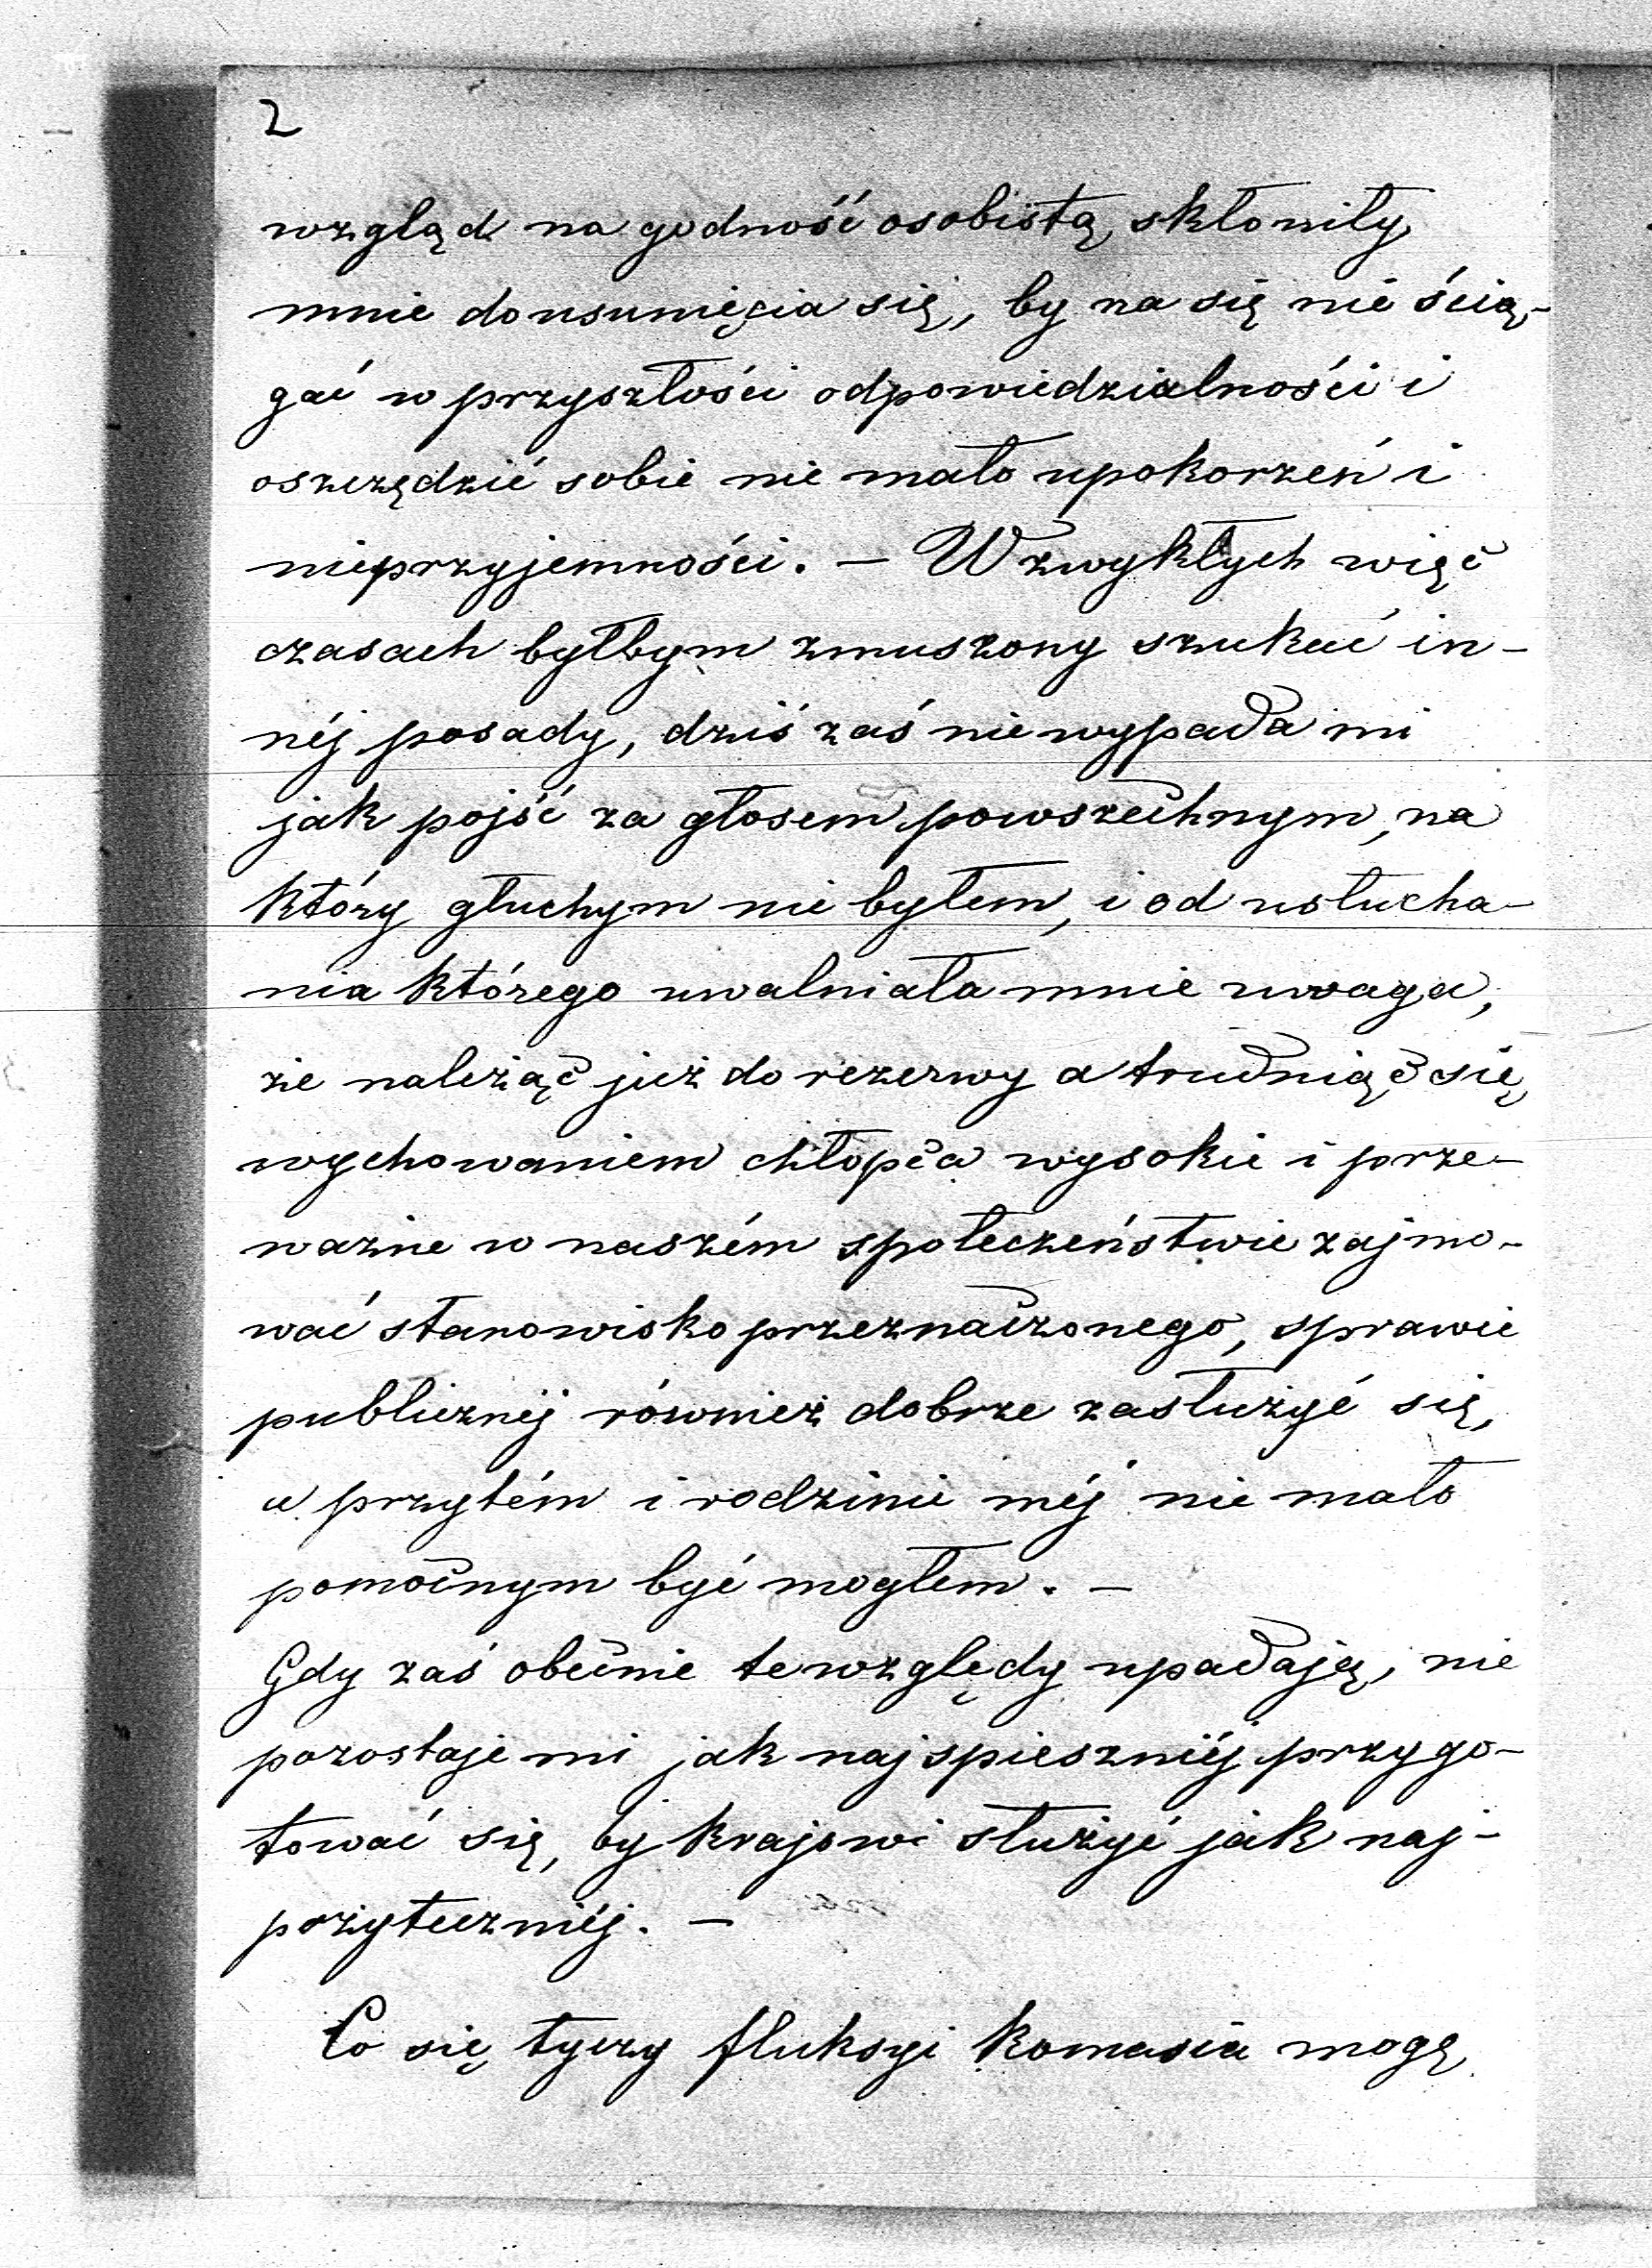 2
wzgląd na godność osobistą skłoniły
mnie do usunięcia się, by na się nie ścią-
gać w przyszłości odpowiedzialności i
oszczędzić sobie nie mało upokorzeń i
nieprzyjemności. — W zwykłych więc
czasach byłbym zmuszony szukać in-
néj posady, dziś zaś nie wypada mi
jak pojść za głosem powszechnym, na
który głuchym nie byłem, i od usłucha-
nia którego uwalniała mnie uwaga,
że należąc już do rezerwy a trudniąc się
wychowaniem chłopca wysokie i prze-
ważne w naszém społeczeństwie zajmo-
wać stanowisko przeznaczonego, sprawie
publicznéj również dobrze zasłużyć się,
a przytém i rodzinie méj nie mało
pomocnym być mogłem. —
Gdy zaś obecnie te względy upadają, nie
pozostaje mi jak najspieszniéj przygo-
tować się, by krajowi służyć jak naj-
pożyteczniéj. —
Co się tyczy fluksyi Romasia mogę